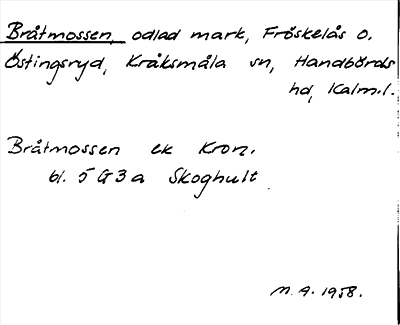 Bråtmossen, odlad mark, Fröskelås o.
Östingsryd, Kråksmåla sn, Handbörds
hd, Kalm.l.
Bråtmossen ek Kron.
bl. 5 G 3 a Skoghult
M.A. 1958.